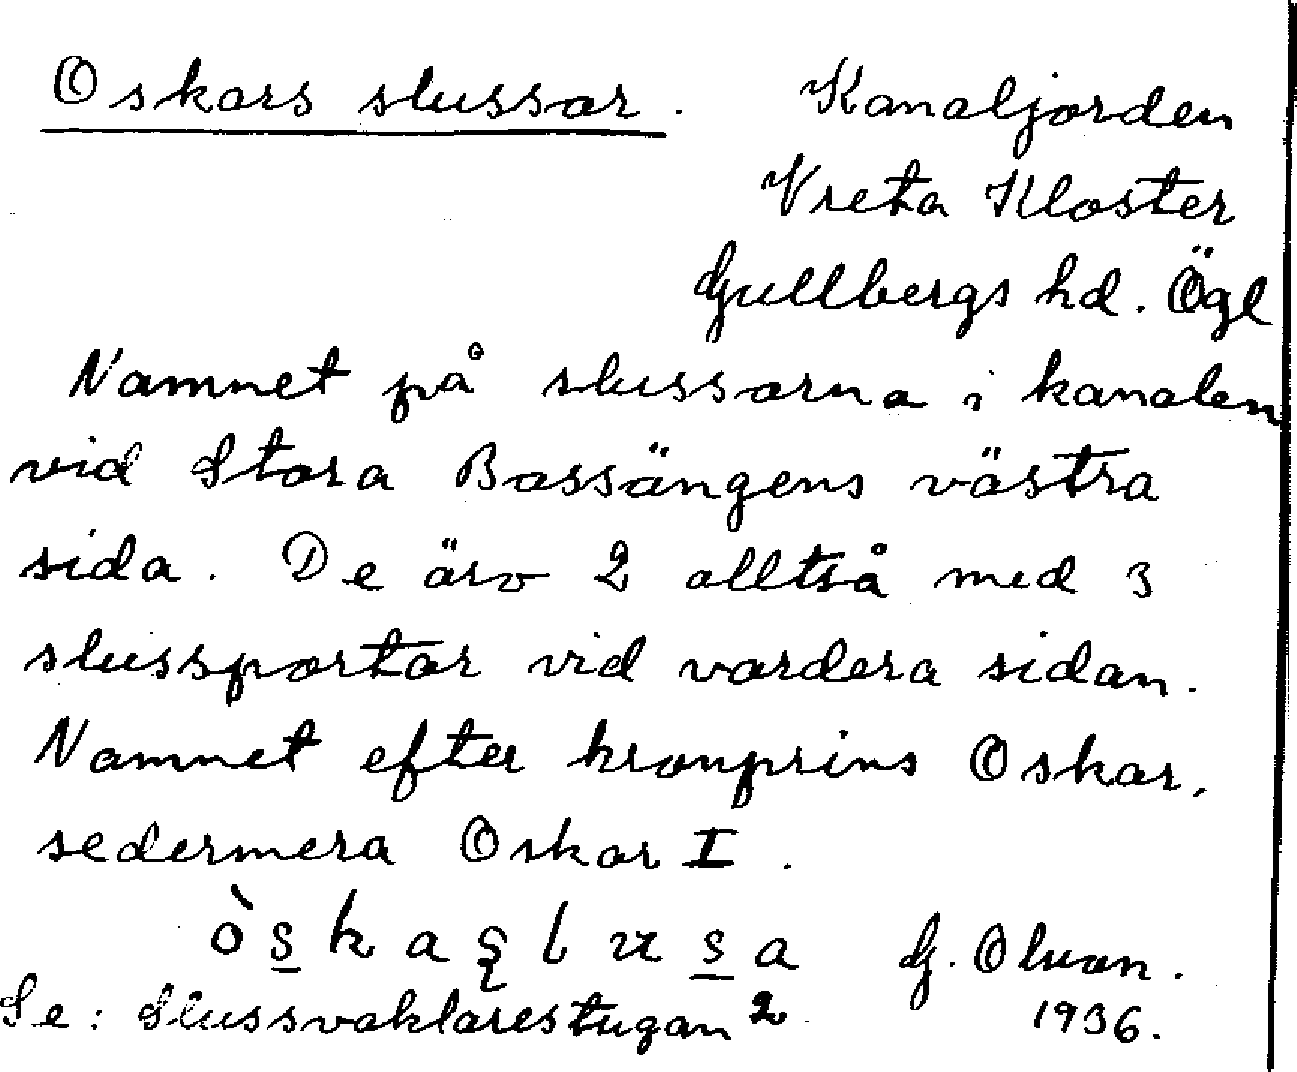 Oskars slussar.
Kanaljorden
Vreta Kloster
Gullbergs hd. Ögl
Namnet på slussarna i kanalen
vid Stora Bassängens västra
sida. De äro 2 alltså med 3
slussportar vid vardera sidan.
Namnet efter kronprins Oskar,
sedermera Oskar I.
G. Olson.
Se: Slussvaktarestugan 2
1936.